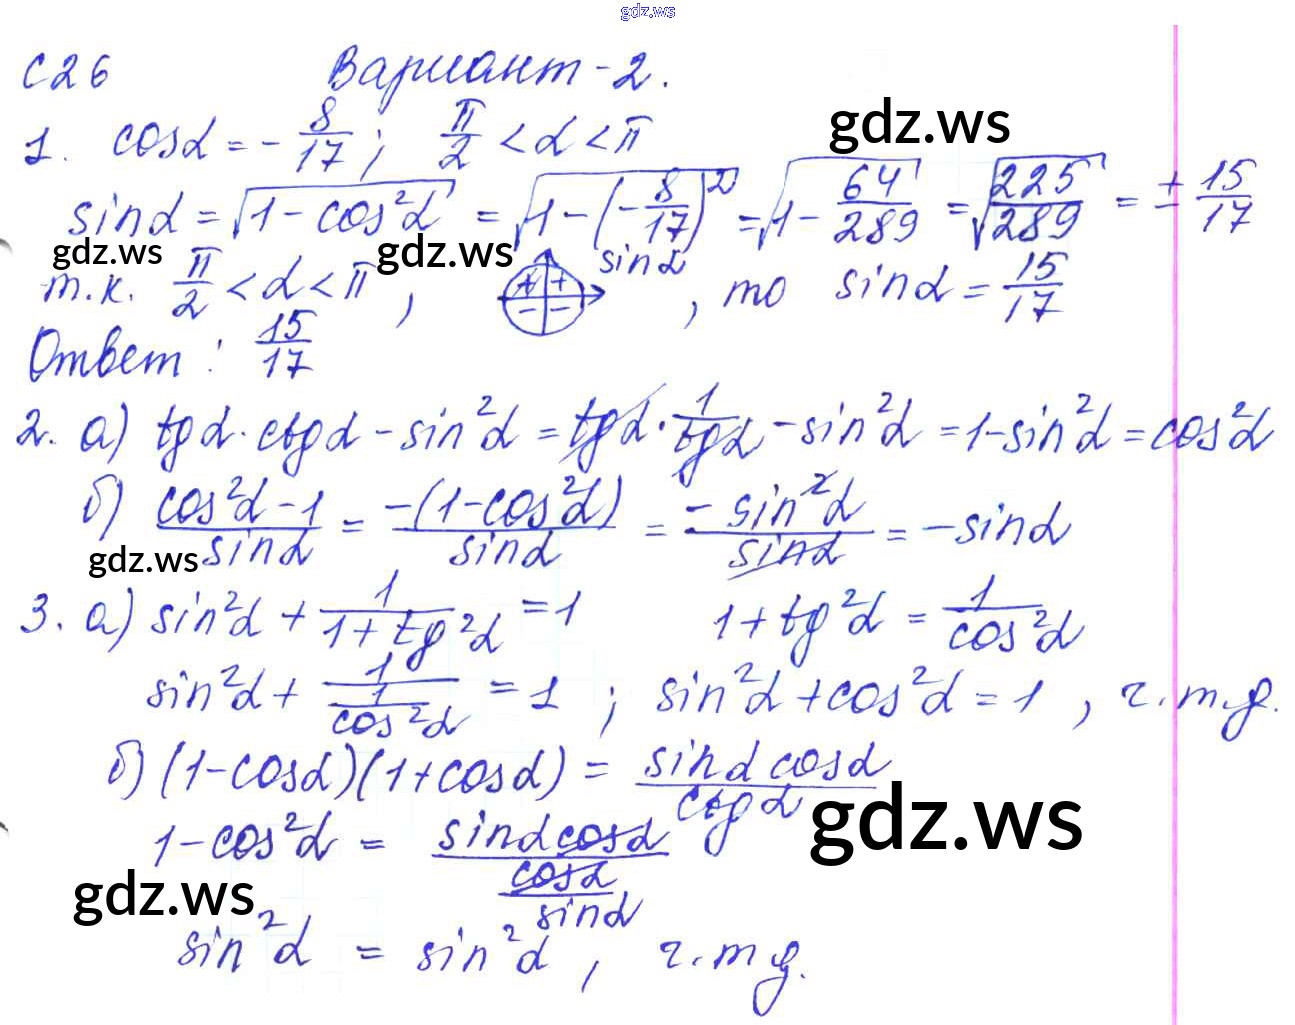 gdz.ws
С26 Вариант-2.
1. cosα = -8/17; π/2 < α < π
gdz.ws
sinα = √(1 - cos²α) = √(1 - (-8/17)²) = √(1 - 64/289) = √(225/289) = ± 15/17
gdz.ws
gdz.ws
т.к. π/2 < α < π, + + - - sinα, то sinα = 15/17
Ответ: 15/17
2. а) tgα · ctgα - sin²α = tgα · 1/tgα - sin²α = 1 - sin²α = cos²α
б) (cos²α - 1)/sinα = -(1 - cos²α)/sinα = -sin²α/sinα = -sinα
gdz.ws
3. а) sin²α + 1/(1 + tg²α) = 1 1 + tg²α = 1/cos²α
sin²α + 1/(1/cos²α) = 1; sin²α + cos²α = 1, ч.т.д.
б) (1 - cosα)(1 + cosα) = sinα cosα/ctgα
gdz.ws
1 - cos²α = sinα cosα/(cosα/sinα)
gdz.ws
sin²α = sin²α, ч.т.д.